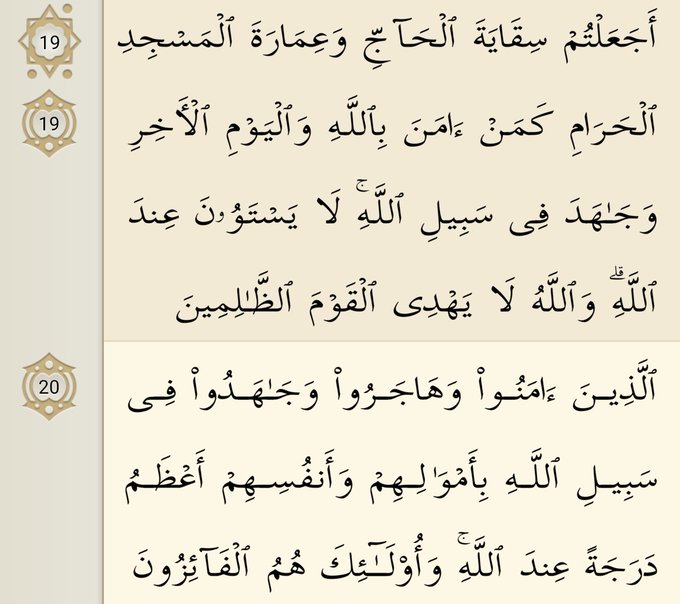 19
أَجَعَلْتُمْ سِقَايَةَ ٱلْحَآجِّ وَعِمَارَةَ ٱلْمَسْجِدِ
19
ٱلْحَرَامِ كَمَنْ ءَامَنَ بِٱللَّهِ وَٱلْيَوْمِ ٱلْأَخِرِ
وَجَـٰهَدَ فِى سَبِيلِ ٱللَّهِ ۚ لَا يَسْتَوُۥنَ عِندَ
ٱللَّهِ ۗ وَٱللَّهُ لَا يَهْدِى ٱلْقَوْمَ ٱلظَّـٰلِمِينَ
20
ٱلَّذِيـنَ ءَامَنُـوا۟ وَهَاجَـرُوا۟ وَجَـٰهَـدُوا۟ فِـى
سَبِيـلِ ٱللَّـهِ بِأَمْوَٰلِـهِمْ وَأَنفُسِـهِمْ أَعْظَـمُ
دَرَجَةً عِندَ ٱللَّهِ ۚ وَأُو۟لَـٰٓئِكَ هُمُ ٱلْفَآئِزُونَ